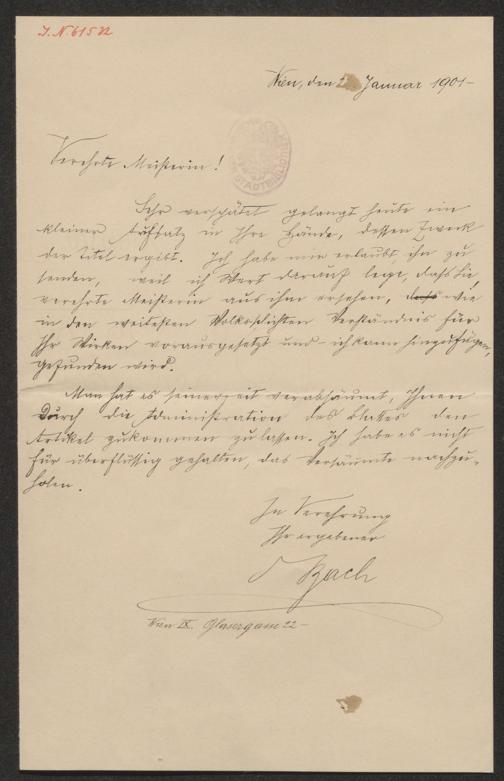 J. N 61572
Wien, den 2 Januar 1901
Verehrte Meisterin!
Sehr verspätet gelangt heute ein
kleiner Aufsatz in Ihre Hände, dessen Zweck
der Titel ergibt. Ich habe mir erlaubt, ihn zu
senden, weil ich Wert darauf lege, dass Sie,
verehrte Meisterin aus ihm ersehen, dass wie
in den weitesten Volksschichten Verständnis für
Ihr Wirken vorausgesetzt und ich kann hinzufügen,
gefunden wird.
Man hat es seinerzeit verabsäumt, Ihnen
durch die Administration des Blattes den
Artikel zukommen zu lassen. Ich habe es nicht
für überflüssig gehalten, das Versäumte nachzu-
holen.
In Verehrung
Ihr ergebener
Bach
Wien IX. Glasergasse 22